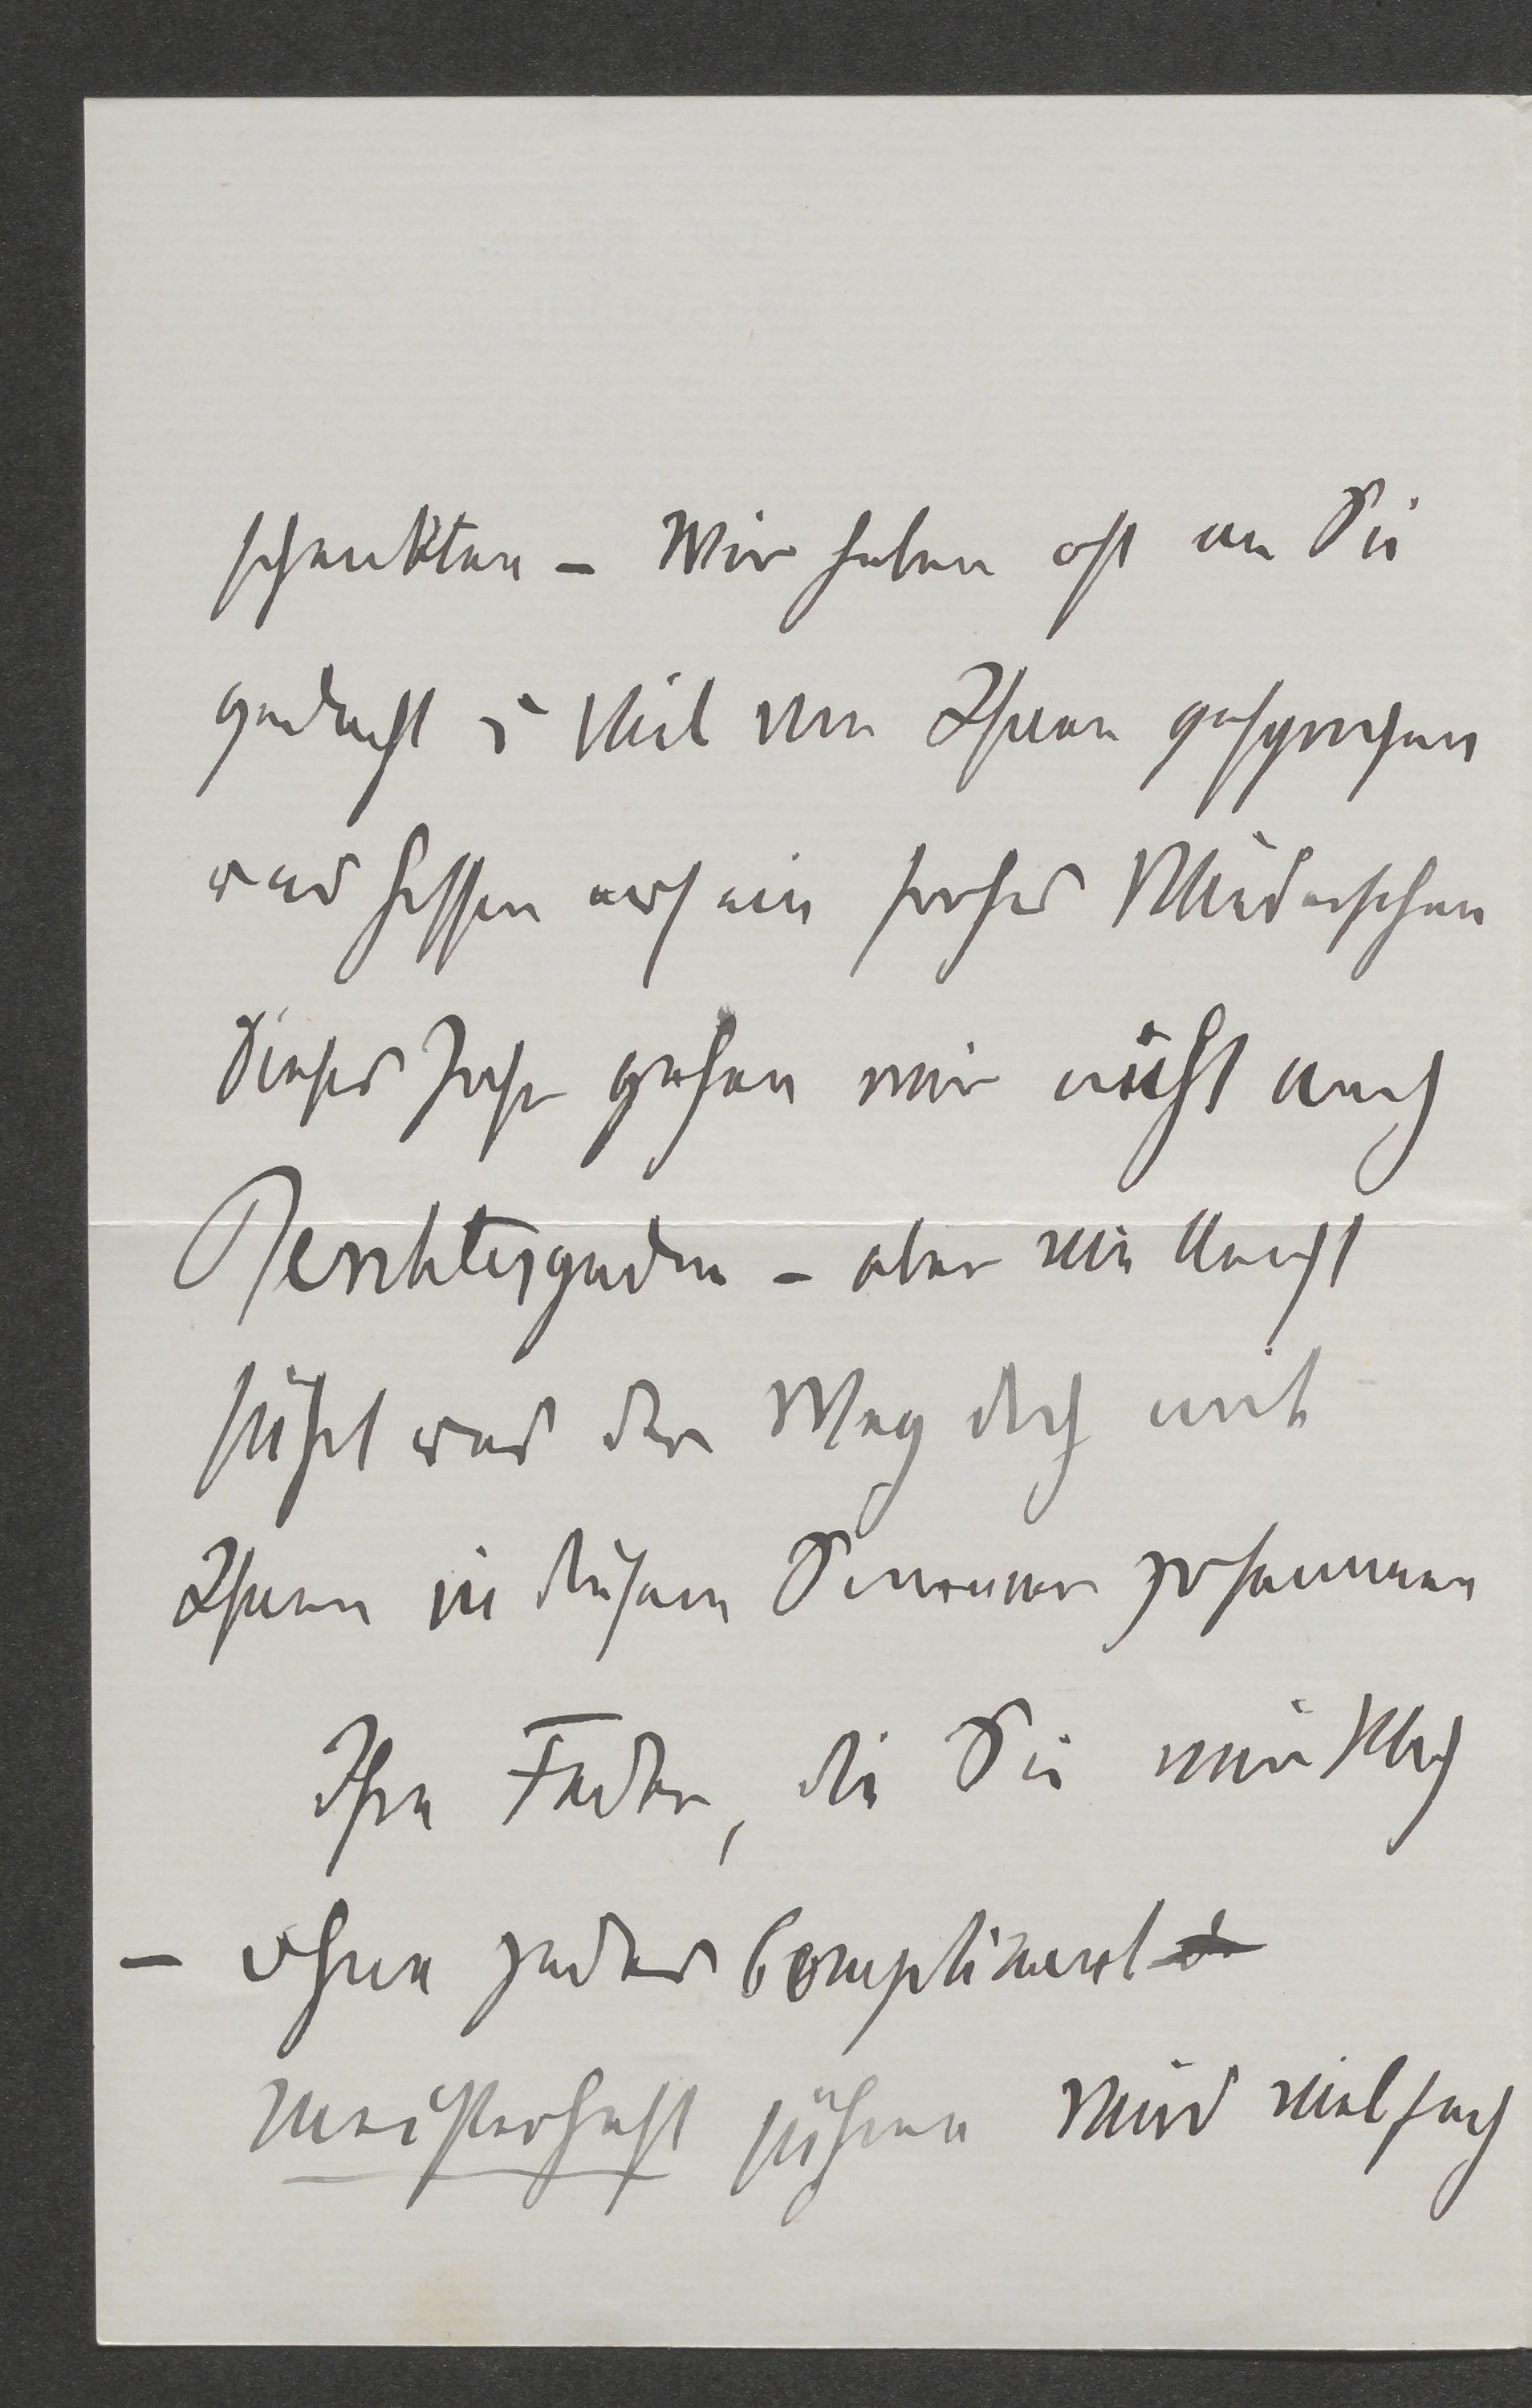 schenkten – Wir haben oft an Sie
gedacht u viel von Ihnen gesprochen
und hoffen auf ein frohes Wiedersehen
dieses Jahr gehen wir nicht nach
Berchtesgaden – aber vielleicht
führt uns der Weg doch mit
Ihnen in diesem Sommer zusammen
Ihre Feder, die Sie wirklich
– ohne jedes Compliment
meisterhaft führen wird vielfach